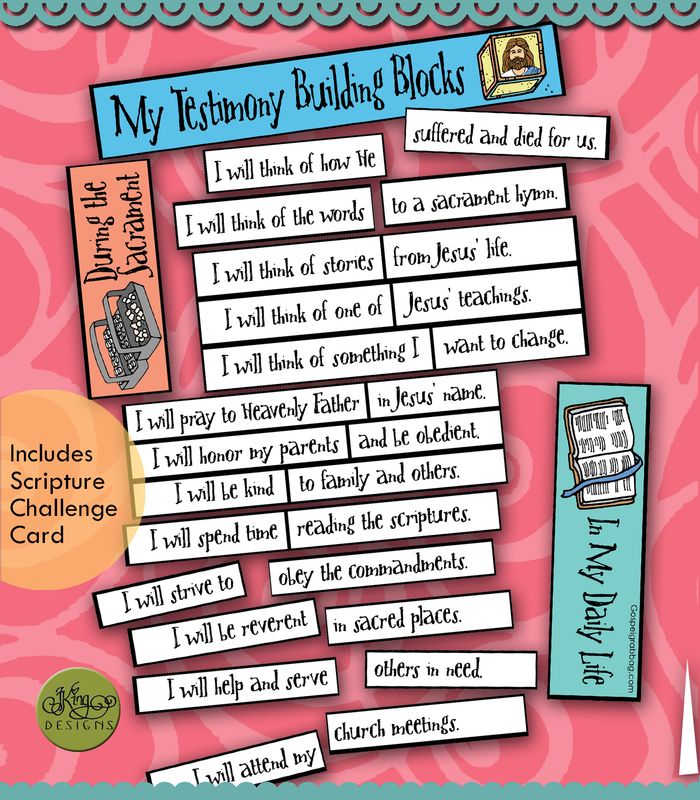 My Testimony Building Blocks
suffered and died for us.
I will think of how He
During the
Sacrament
I will think of the words
to a sacrament hymn.
I will think of stories
from Jesus' life.
I will think of one of
Jesus' teachings.
I will think of something I
want to change.
I will pray to Heavenly Father
in Jesus' name.
I will honor my parents
and be obedient.
I will be kind
to family and others.
I will spend time
reading the scriptures.
Includes
Scripture
Challenge
Card
I will strive to
obey the commandments.
I will be reverent
in sacred places.
I will help and serve
others in need.
I will attend my
church meetings.
In My Daily Life
Gospelgrabbag.com
JKing
DESIGNS